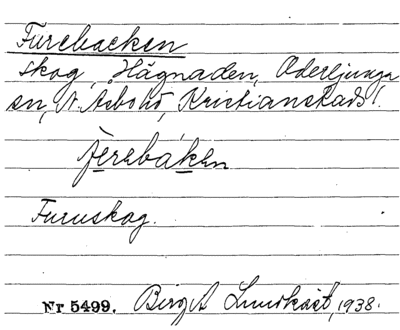 Furebacken
skog, Hägnaden, Oderljunga
sn, N. Åsbohd, Kristianstads l.
fèrebáken
Furuskog.
Nr 5499. Birg A Lundkvist, 1938.